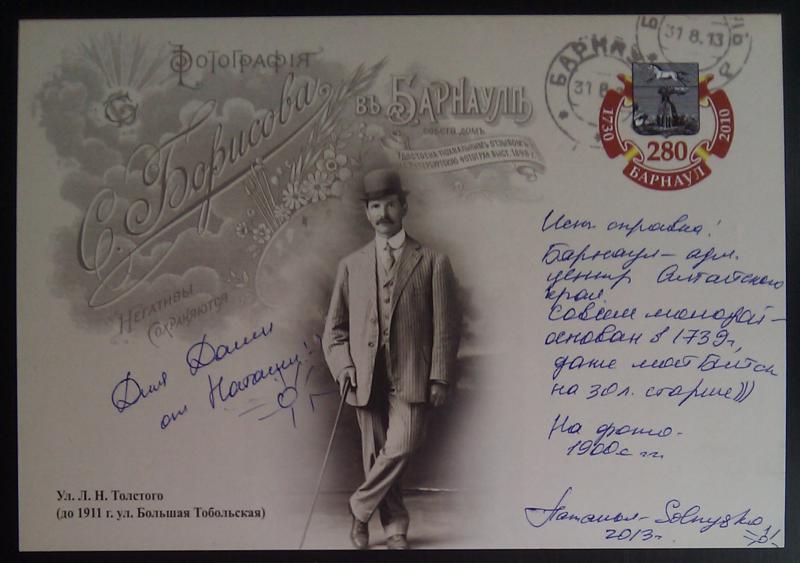 Фотографія
С. Борисова
въ Барнаулѣ
собств. домъ.
Удостоена похвальнымъ отзывомъ
Негативы
Сохраняются
БАРНАУЛ
31 8 13
31 8
1730
2010
280
БАРНАУЛ
Для Даши
от Наташи!
Ист. справка!
Барнаул - адм.
центр Алтайского
края
Совсем молодой -
основан в 1739г,
даже мой Бийск
на 30 л. старше)))
На фото -
1900-е гг.
Наталья - Solnyshko
2013г.
Ул. Л. Н. Толстого
(до 1911 г. ул. Большая Тобольская)